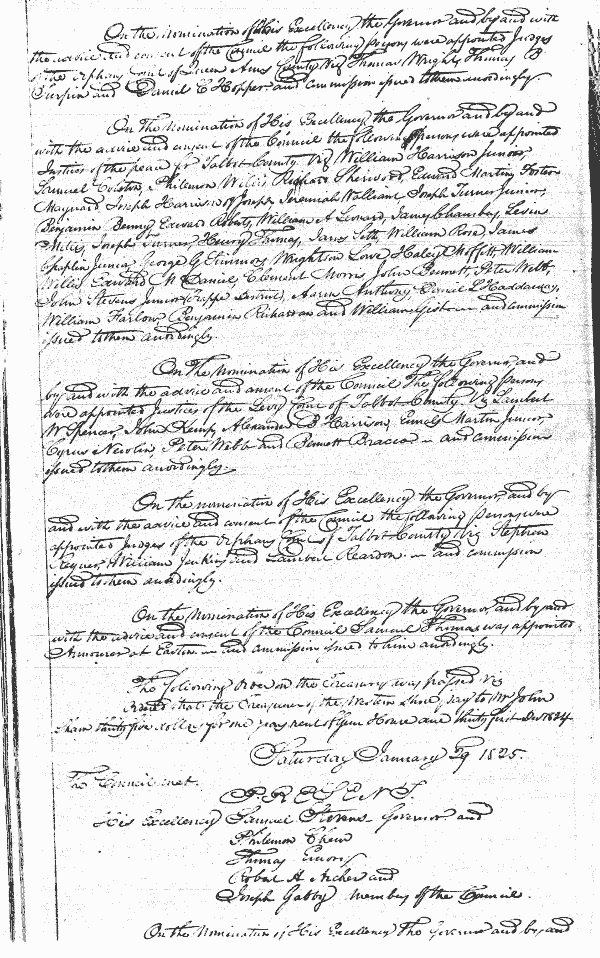 On the nomination of His Excellency the Governor and by and with
the advice and consent of the Council the following persons were appointed Judges
of the Orphans Court of Queen Anns County Viz Thomas Wright, Thomas B
Turpin and Daniel C Hopper and commission issued to them accordingly
On the nomination of His Excellency the Governor and by and
with the advice and consent of the Council the following persons were appointed
Justices of the peace for Talbot County Viz William Harrison Junior,
Samuel Colston, Philemon Willis Richard Sherwood, Edward Martin, Foster
Maynard, Joseph Harrison of Joseph Jeremiah Valliant Joseph Turner Junior,
Benjamin Benny, Edward Roberts, William A Leonard, James Chambers, Levin
Millis, Joseph Turner, Henry Thomas, James Seth, William Rose, James
Chaplin Junior, George G Simmons Wrightson Love, Haley Moffitt, William
Willis Edward McDaniel, Clement Morris John Bennett, Peter Webb,
John Stevens Junior (Trappe District), Aaron Anthony, Daniel L Haddaway,
William Farlow, Benjamin Richardson and William Gist and commission
issued to them accordingly.
On the nomination of His Excellency the Governor, and
by and with the advice and consent of the Council The following persons
were appointed Justices of the Levy Court of Talbot County Viz Lambert
W Spencer, John Kemp, Alexander B Harrison, Martin Junior,
Cyrus Newlin, Peter Webb and Bennett Bracco and commission
issued to them accordingly.
On the nomination of His Excellency the Governor, and by
and with the advice and consent of the Council the following persons were
appointed Judges of the Orphans Court of Talbot County Viz Stephen
William Jenkins and Lambert Reardon and commission
issued to them accordingly.
On the nomination of His Excellency the Governor, and by and
with the advice and consent of the Council Samuel Thomas was appointed
Armourer at Easton and commission issued to him accordingly.
The following Order on the Treasury was passed Viz
Ordered that the Treasurer of the Western Shore pay to Mr John
Shaw thirty five dollars for one years rent of Gun House due thirty first Decr 1824
Saturday January 29 1825.
The Council met.
PRESENT.
His Excellency Samuel Stevens Governor and
Philemon Chew
Thomas Emory
Robert H Archer and
Joseph Gabby members of the Council.
On the nomination of His Excellency The Governor and by, and